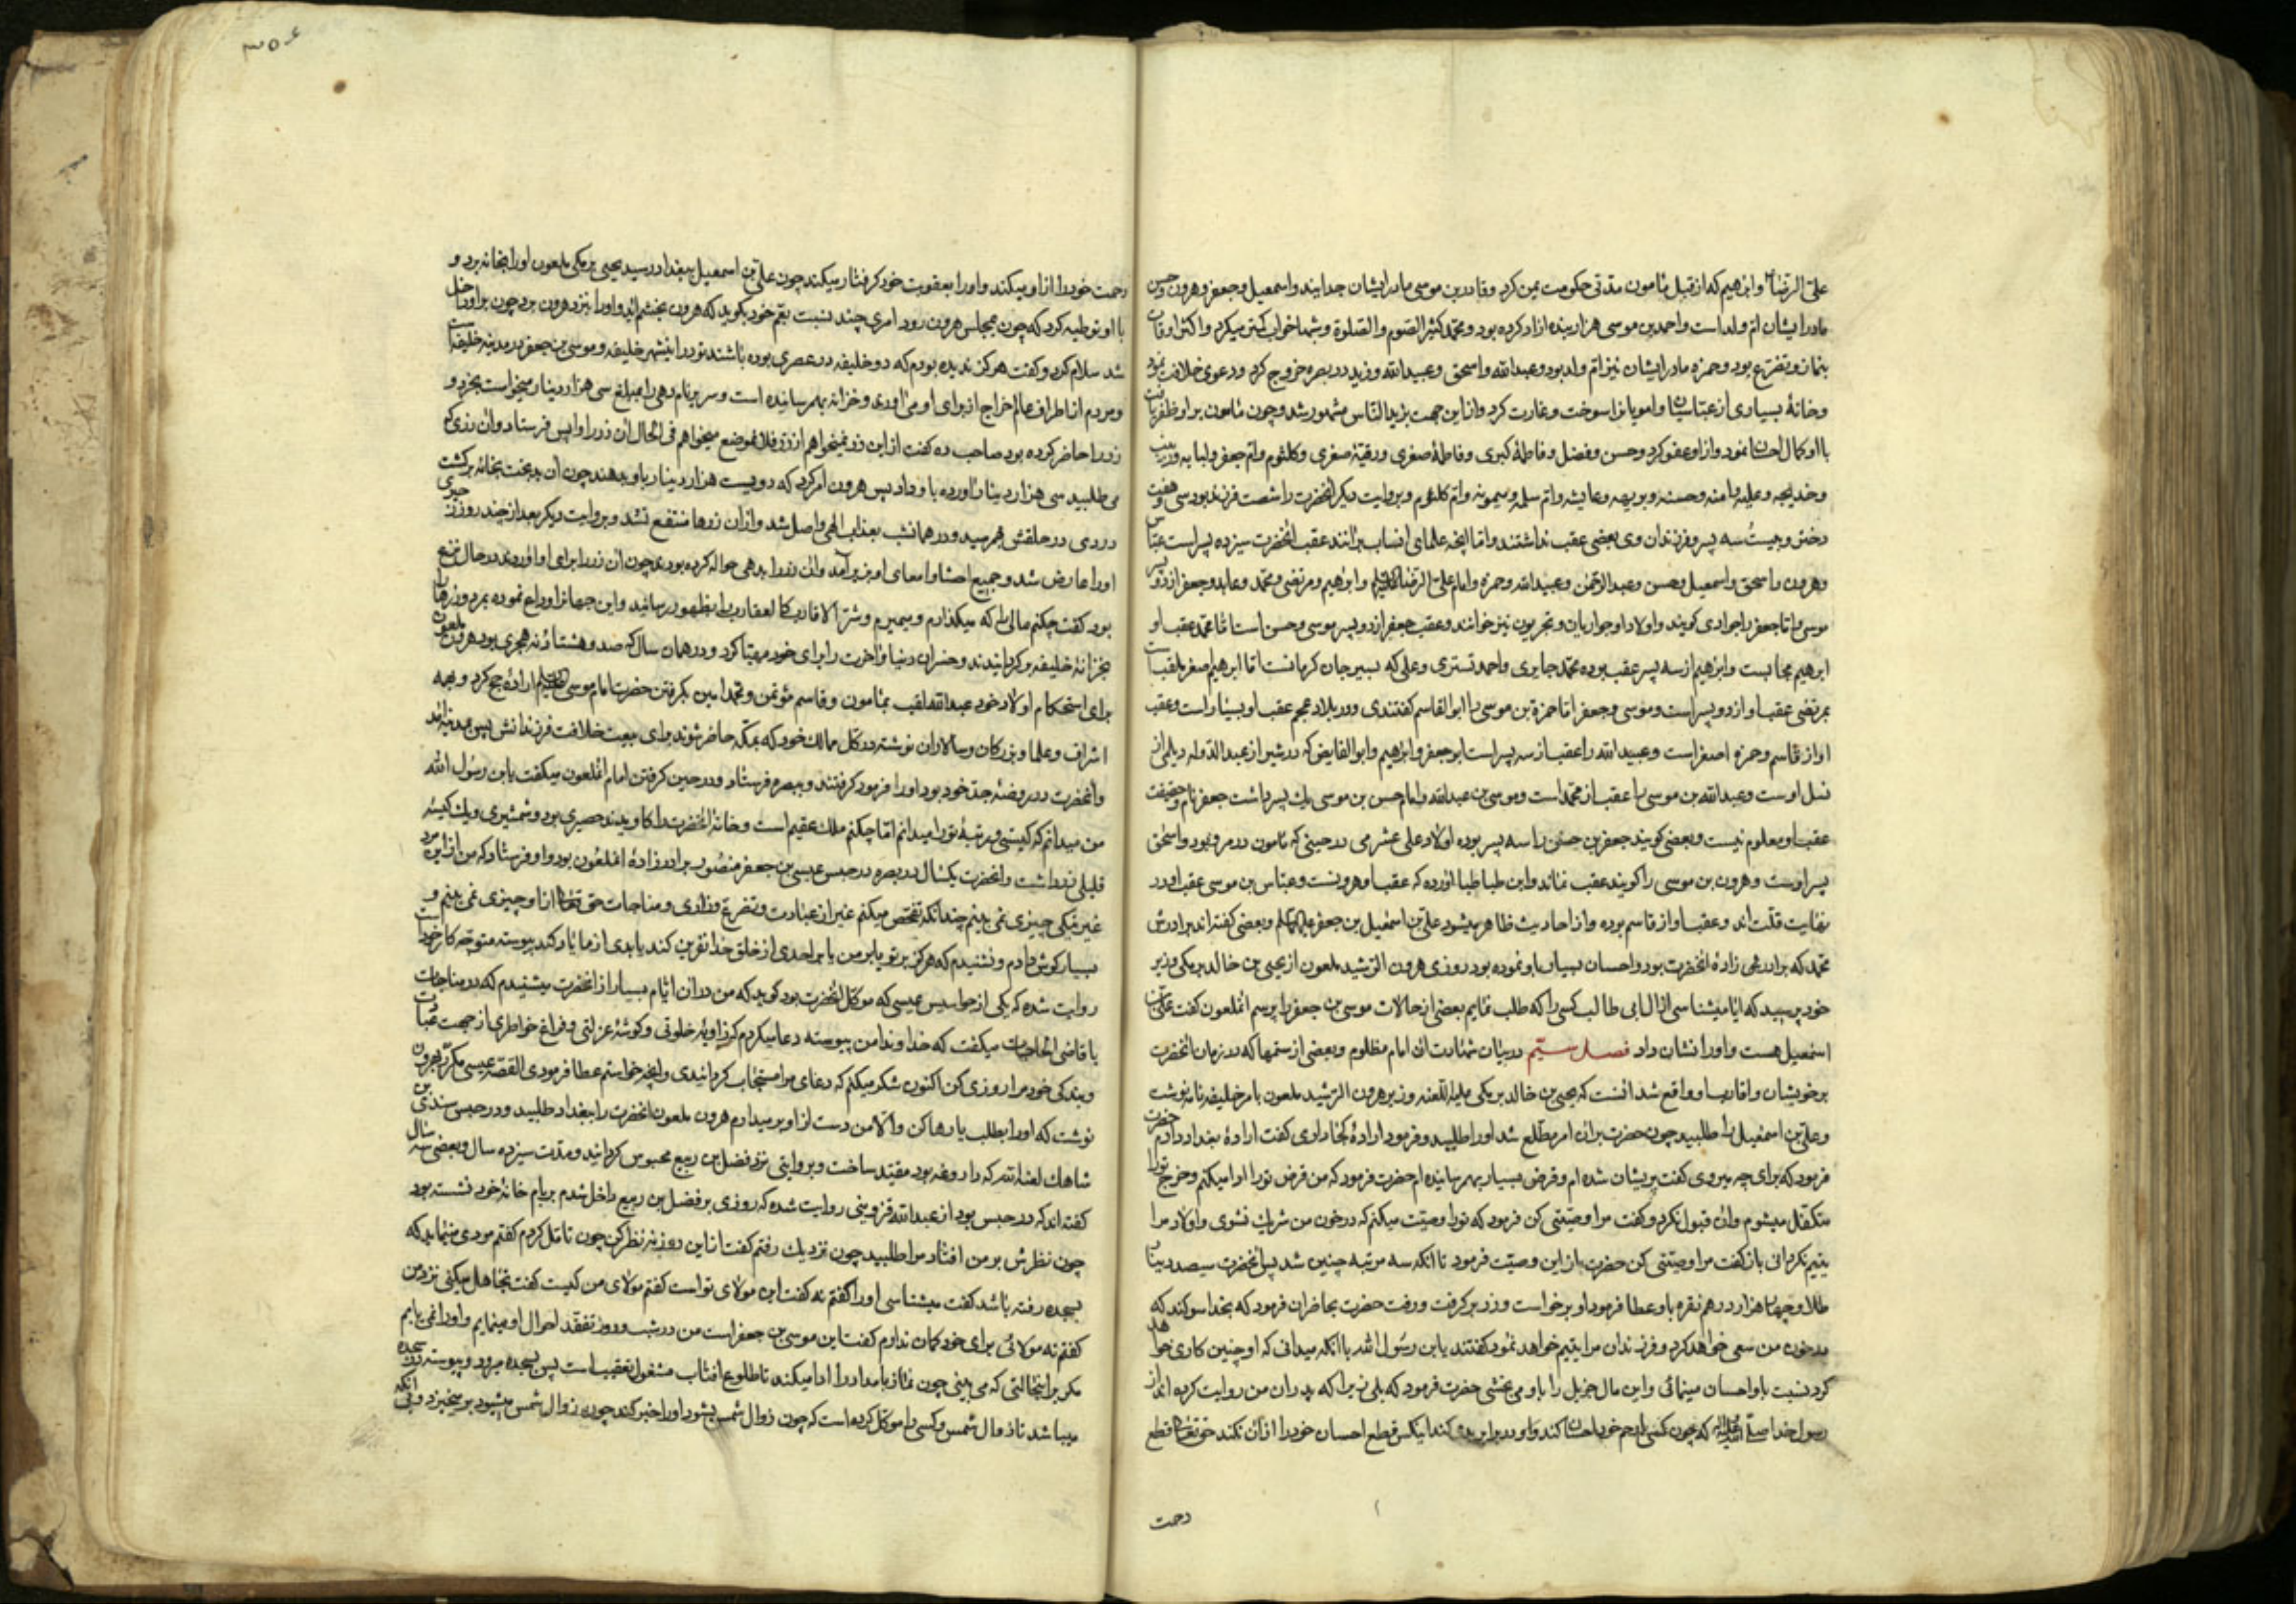 علی الرضا و ابراهیم که از قبل مأمون مدتی حکومت یمن کرد و قادر بن موسی مادر ایشان جدایند و اسمعیل و جعفر و هرون و حسن
مادر ایشان ام ولد است و احمد بن موسی هزار بنده ازاد کرده بود و محمد کثیر الصوم والصلوة و شبها خواب کمتر میکرد و اکثر اوقات
بنماز و تضرع بود و حمزه مادر ایشان نیز ام ولد بود و عبدالله و اسحق و عبیدالله و زید در بصره خروج کرد و دعوی خلافت نمود
و خانهٔ بسیاری از عباسیان و امویانرا سوخت و غارت کرد و ازین جهت بزید النّاس مشهور شد و چون مأمون بر او ظفر یافت
با او کمال احسان نمود و از او عفو کرد و حسن و فضل و فاطمهٔ کبری و فاطمهٔ صغری و رقیهٔ صغری و کلثوم و ام جعفر و لبابه و زینب
و خدیجه و علیه و امنه و حسنه و بریهه و عایشه و ام سلمه و میمونه و ام کلثوم و بروایت دیگر انحضرت را شصت فرزند بود سی و هفت
دختر و بیست و سه پسر و فرزندان وی بعضی عقب نداشتند و اما انچه علمای انساب برانند عقب انحضرت سیزده پسر است عباس
و هرون و اسحق و اسمعیل و حسن و عبدالرحمن و عبیدالله و حمزه و امام علی الرضا علیه السلم و ابراهیم و مرتضی و محمد و عابد و جعفر از دو پسر
موسی و اما جعفر را جوادی کویند و اولاد او جواریان و تجریون نیز خوانند و عقب جعفر از دو پسر موسی و حسن است اما محمد عقب او
ابرهیم مجابست و ابرهیم از سه پسر عقب بوده محمد جایری و احمد تستری و علی که بسیرجان کرمانست اما ابرهیم اصغر ملقب است
بمرتضی عقب او از دو پسر است و موسی و جعفر اما حمزة بن موسی را ابوالقاسم کفتندی و در بلاد عجم عقب او بسیار است و عقب
او از قاسم و حمزه اصغر است و عبیدالله را عقب از سه پسر است ابو جعفر و ابرهیم و ابوالفایض که در شیراز عبدالدوله دیلمی از
نسل اوست و عبدالله بن موسی را عقب از محمد است و موسی بن عبدالله و امام حسن بن موسی یک پسر داشت جعفر نام و حقیقت
عقب او معلوم نیست و بعضی کویند جعفر بن حسن را سه پسر بوده اولاد علی عشر می در حینی که مأمون در مرو بود و اسحق
پسر اوست و هرون بن موسی را کویند عقب نماند و ابن طباطبا اورده که عقب او هرونست و عباس بن موسی عقب او در
نهایت قلت اند و عقب او از قاسم بوده و از احادیث ظاهر میشود علی بن اسمعیل بن جعفر علیه السلم و بعضی کفته اند برادرش
محمد که برادر زادهٔ انحضرت بود و احسان بسیار باو نموده بود روزی هرون الرشید ملعون از یحیی بن خالد برمکی وزیر
خود پرسید که ایا میشناسی از ال ابی طالب کسی را که طلب نمایم بعضی از حالات موسی بن جعفر را پرسم انملعون کفت علی بن
اسمعیل هست و او را نشان داد فصل ستیم در بیان شهادت ان امام مظلوم و بعضی از ستمها که در زمان انحضرت
بر خویشان و اقارب او واقع شد انست که یحیی بن خالد برمکی علیه اللعنه وزیر هرون الرشید ملعون بامر خلیفه نامه نوشت
و علی بن اسمعیل را طلبید چون حضرت بران امر مطلع شد او را طلبید و فرمود ارادهٔ کجا داری کفت ارادهٔ بغداد دارم حضرت
فرمود که برای چه میروی کفت پریشان شده ام و قرض بسیار بهمرسانیده ام حضرت فرمود که من قرض تو را ادا میکنم و خرج تو را
متکفل میشوم وان قبول نکرد و کفت مرا وصیتی کن فرمود که تو را وصیت میکنم که در خون من شریک نشوی و اولاد مرا
یتیم نکردانی باز کفت مرا وصیتی کن حضرت باز این وصیت فرمود تا انکه سه مرتبه چنین شد پس انحضرت سیصد دینار
طلا و چهار هزار درهم نقره باو عطا فرمود او برخواست و زر بر کرفت و رفت حضرت بحاضران فرمود که بخدا سوکند که
در خون من سعی خواهد کرد و فرزندان مرا یتیم خواهد نمود کفتند یابن رسول الله با انکه میدانی که او چنین کاری خواهد
کرد نسبت باو احسان مینمائی و این مال جزیل را باو می بخشی حضرت فرمود که بلی زیرا که پدران من روایت کرده اند از
رسول خدا صلی الله علیه واله که چون کسی با رحم خود احسان کند و او در برابر بدی کند اینکس قطع احسان خود را از ان نکند حق تعالی قطع
رحمت
۳۵۶
رحمت خود را از او میکند و او را بعقوبت خود کرفتار میکند چون علی بن اسمعیل ببغداد رسید یحیی برمکی ملعون او را بخانه برد و
با او توطیه کرد که چون بمجلس هرون رود امری چند نسبت بعم خود بکوید که هرون بخشم اید و او را نزد هرون برد چون بر او داخل
شد سلام کرد و کفت هرکز ندیده بودم که دو خلیفه در عصری بوده باشند تو در اینشهر خلیفه و موسی بن جعفر در مدینه خلیفه است
و مردم از اطراف عالم خراج از برای او می اورند و خزانه بهمرسانیده است و سر بنام دهی را بمبلغ سی هزار دینار میخواست بخرد و
زر را حاضر کرده بود صاحب ده کفت از این زر نمیخواهم از زر فلان موضع میخواهم فی الحال ان زر را واپس فرستاد و ان زری که
می طلبید سی هزار دینار اورده باو داد پس هرون امر کرد که دویست هزار دینار باو بدهند چون ان بدبخت بخانه برکشت
دردی در حلقش بهمرسید و در همانشب بعذاب الهی واصل شد و از ان زرها منتفع نشد و بروایت دیکر بعد از چند روز زحیری
او را عارض شد و جمیع احشا و امعای او بزیر آمد وان زر را بدهی حواله کرده بودند چون ان زر را برای او اوردند در حال نزع
بود کفت چکنم مالی را که میکذارم و میمیرم و شر الاقارب کالعقارب را بظهور رسانید و این جهانرا وداع نموده بمرد و زرها را
بخزانهٔ خلیفه بر کردانیدند و خسران دنیا و اخرت را برای خود مهیا کرد و در همان سال که صد و هشتاد و نه هجری بود هرون ملعون
برای استحکام اولاد خود عبدالله لقب بمأمون و قاسم مؤتمن و محمد امین بکرفتن حضرت امام موسی علیه السلم ارادهٔ حج کرد و بهمه
اشراف و علما و بزرکان و سالاران نوشته در کل ممالک خود که بمکه حاضر شوند برای بیعت خلافت فرزندانش پس بمدینه امد
وانحضرت در روضهٔ جد خود بود او را فرمود کرفتند و ببصره فرستاد و در حین کرفتن امام انملعون میکفت یابن رسول الله
من میدانم که کیستی و مرتبهٔ تو را میدانم اما چکنم ملک عقیم است و خانهٔ انحضرت را کاویدند حصیری بود و شمشیری و یک کیسه
قلیلی زر داشت و انحضرت یکسال در بصره در حبس عیسی بن جعفر منصور برادر زادهٔ انملعون بود و او فرستاد که من از این مرد
غیر نیکی چیزی نمی بینم چندانکه تفحص میکنم غیر از عبادت و تضرع و زاری و مناجات حق تعالی از او چیزی نمی بینم و
بسیار کوش دادم و نشنیدم که هرکز بر تو یا بر من یا بر احدی از خلق خدا نفرین کند یا بدی از ما یاد کند پیوسته متوجه کار خود است
روایت شده که یکی از جواسیس عیسی که موکل انحضرت بود کوید که من در ان ایام بسیار از انحضرت میشنیدم که در مناجات
با قاضی الحاجات میکفت که خداوندا من پیوسته دعا میکردم که زاویهٔ خلوتی و کوشهٔ عزلتی و فراغ خواطری از جهت عبادت
و بندکی خود مرا روزی کن اکنون شکر میکنم که دعای مرا مستجاب کردانیدی و انچه خواستم عطا فرمودی القصه عیسی مکرر بهرون
نوشت که او را بطلب یا رها کن والا من دست از او بر میدارم هرون ملعون انحضرت را ببغداد طلبید و در حبس سندی بن
شاهک لعنة الله که داروغه بود مقید ساخت و بروایتی نزد فضل بن ربیع محبوس کردانید و مدت سیزده سال و بعضی سه سال
کفته اند که در حبس بود از عبدالله قزوینی روایت شده که روزی بر فضل بن ربیع داخل شدم بر بام خانهٔ خود نشسته بود
چون نظرش بر من افتاد مرا طلبید چون نزدیک رفتم کفت از این روزنه نظر کن چون تامل کردم کفتم مردی مینماید که
بسجده رفته باشد کفت میشناسی او را کفتم نه کفت این مولای تو است کفتم مولای من کیست کفت تجاهل میکنی نزد من
کفتم نه مولائی برای خود کمان ندارم کفت این موسی بن جعفر است من در شب و روز تفقد احوال او مینمایم و او را نمی یابم
مکر بر اینحالتی که می بینی چون نماز بامداد را ادا میکند تا طلوع افتاب مشغول تعقیب است پس بسجده میرود و پیوسته در سجده
میباشد تا زوال شمس و کسی را موکل کرده است که چون زوال شمس بشود او را خبر کند چون زوال شمس میشود بر میخیزد و بی انکه